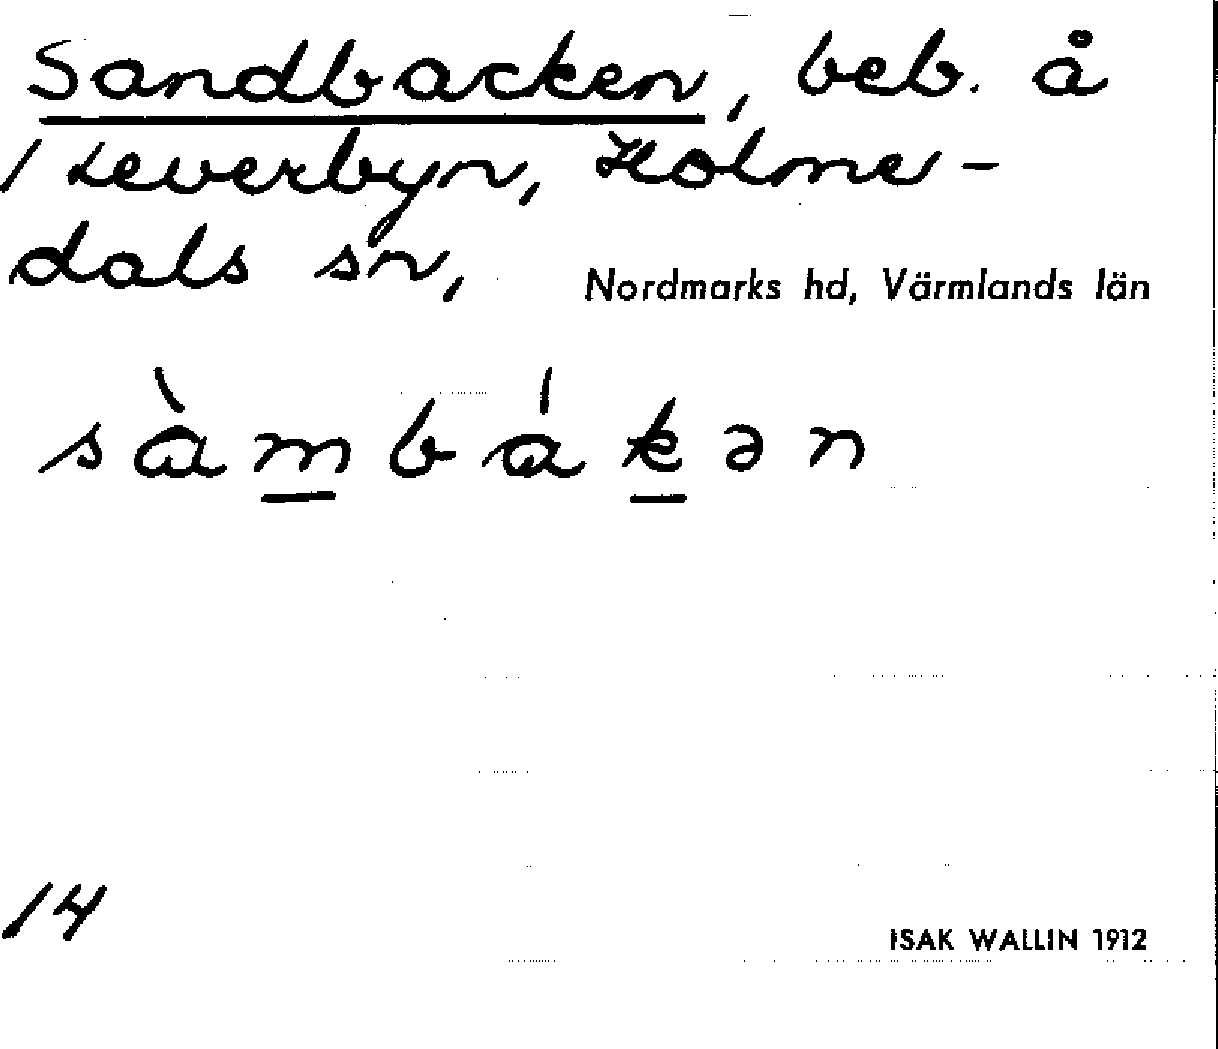 Sandbacken, beb. å
1 Leverbyn, Holme-
dals sn,
Nordmarks hd, Värmlands län
sàmbákən
14
ISAK WALLIN 1912